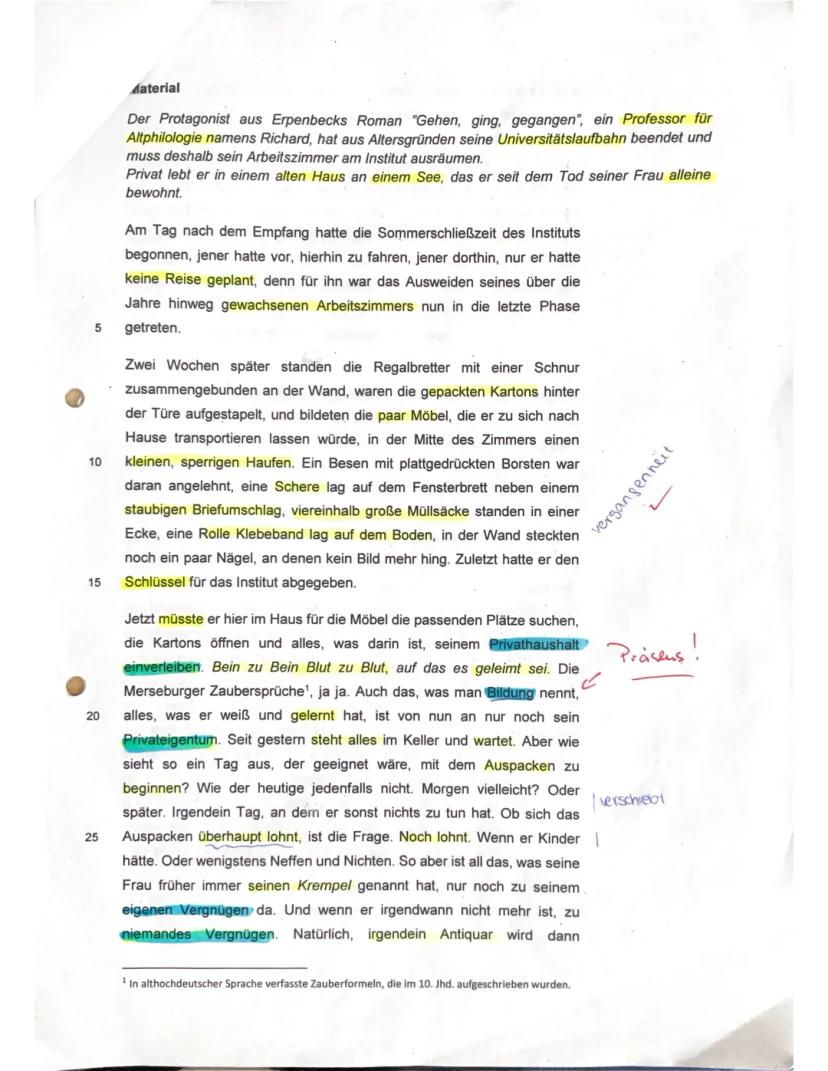 Material
Der Protagonist aus Erpenbecks Roman "Gehen, ging, gegangen", ein Professor für
Altphilologie namens Richard, hat aus Altersgründen seine Universitätslaufbahn beendet und
muss deshalb sein Arbeitszimmer am Institut ausräumen.
Privat lebt er in einem alten Haus an einem See, das er seit dem Tod seiner Frau alleine
bewohnt.
Am Tag nach dem Empfang hatte die Sommerschließzeit des Instituts
begonnen, jener hatte vor, hierhin zu fahren, jener dorthin, nur er hatte
keine Reise geplant, denn für ihn war das Ausweiden seines über die
Jahre hinweg gewachsenen Arbeitszimmers nun in die letzte Phase
5 getreten.
Zwei Wochen später standen die Regalbretter mit einer Schnur
zusammengebunden an der Wand, waren die gepackten Kartons hinter
der Türe aufgestapelt, und bildeten die paar Möbel, die er zu sich nach
Hause transportieren lassen würde, in der Mitte des Zimmers einen
10 kleinen, sperrigen Haufen. Ein Besen mit plattgedrückten Borsten war
daran angelehnt, eine Schere lag auf dem Fensterbrett neben einem
staubigen Briefumschlag, viereinhalb große Müllsäcke standen in einer
Ecke, eine Rolle Klebeband lag auf dem Boden, in der Wand steckten
noch ein paar Nägel, an denen kein Bild mehr hing. Zuletzt hatte er den
15 Schlüssel für das Institut abgegeben.
vergangenheit
Jetzt müsste er hier im Haus für die Möbel die passenden Plätze suchen,
die Kartons öffnen und alles, was darin ist, seinem Privathaushalt
einverleiben. Bein zu Bein Blut zu Blut, auf das es geleimt sei. Die
Präsens!
Merseburger Zaubersprüche¹, ja ja. Auch das, was man Bildung nennt,
20 alles, was er weiß und gelernt hat, ist von nun an nur noch sein
Privateigentum. Seit gestern steht alles im Keller und wartet. Aber wie
sieht so ein Tag aus, der geeignet wäre, mit dem Auspacken zu
beginnen? Wie der heutige jedenfalls nicht. Morgen vielleicht? Oder
verschiebt
später. Irgendein Tag, an dem er sonst nichts zu tun hat. Ob sich das
25 Auspacken überhaupt lohnt, ist die Frage. Noch lohnt. Wenn er Kinder
hätte. Oder wenigstens Neffen und Nichten. So aber ist all das, was seine
Frau früher immer seinen Krempel genannt hat, nur noch zu seinem
eigenen Vergnügen da. Und wenn er irgendwann nicht mehr ist, zu
niemandes Vergnügen. Natürlich, irgendein Antiquar wird dann
¹ In althochdeutscher Sprache verfasste Zauberformeln, die im 10. Jhd. aufgeschrieben wurden.